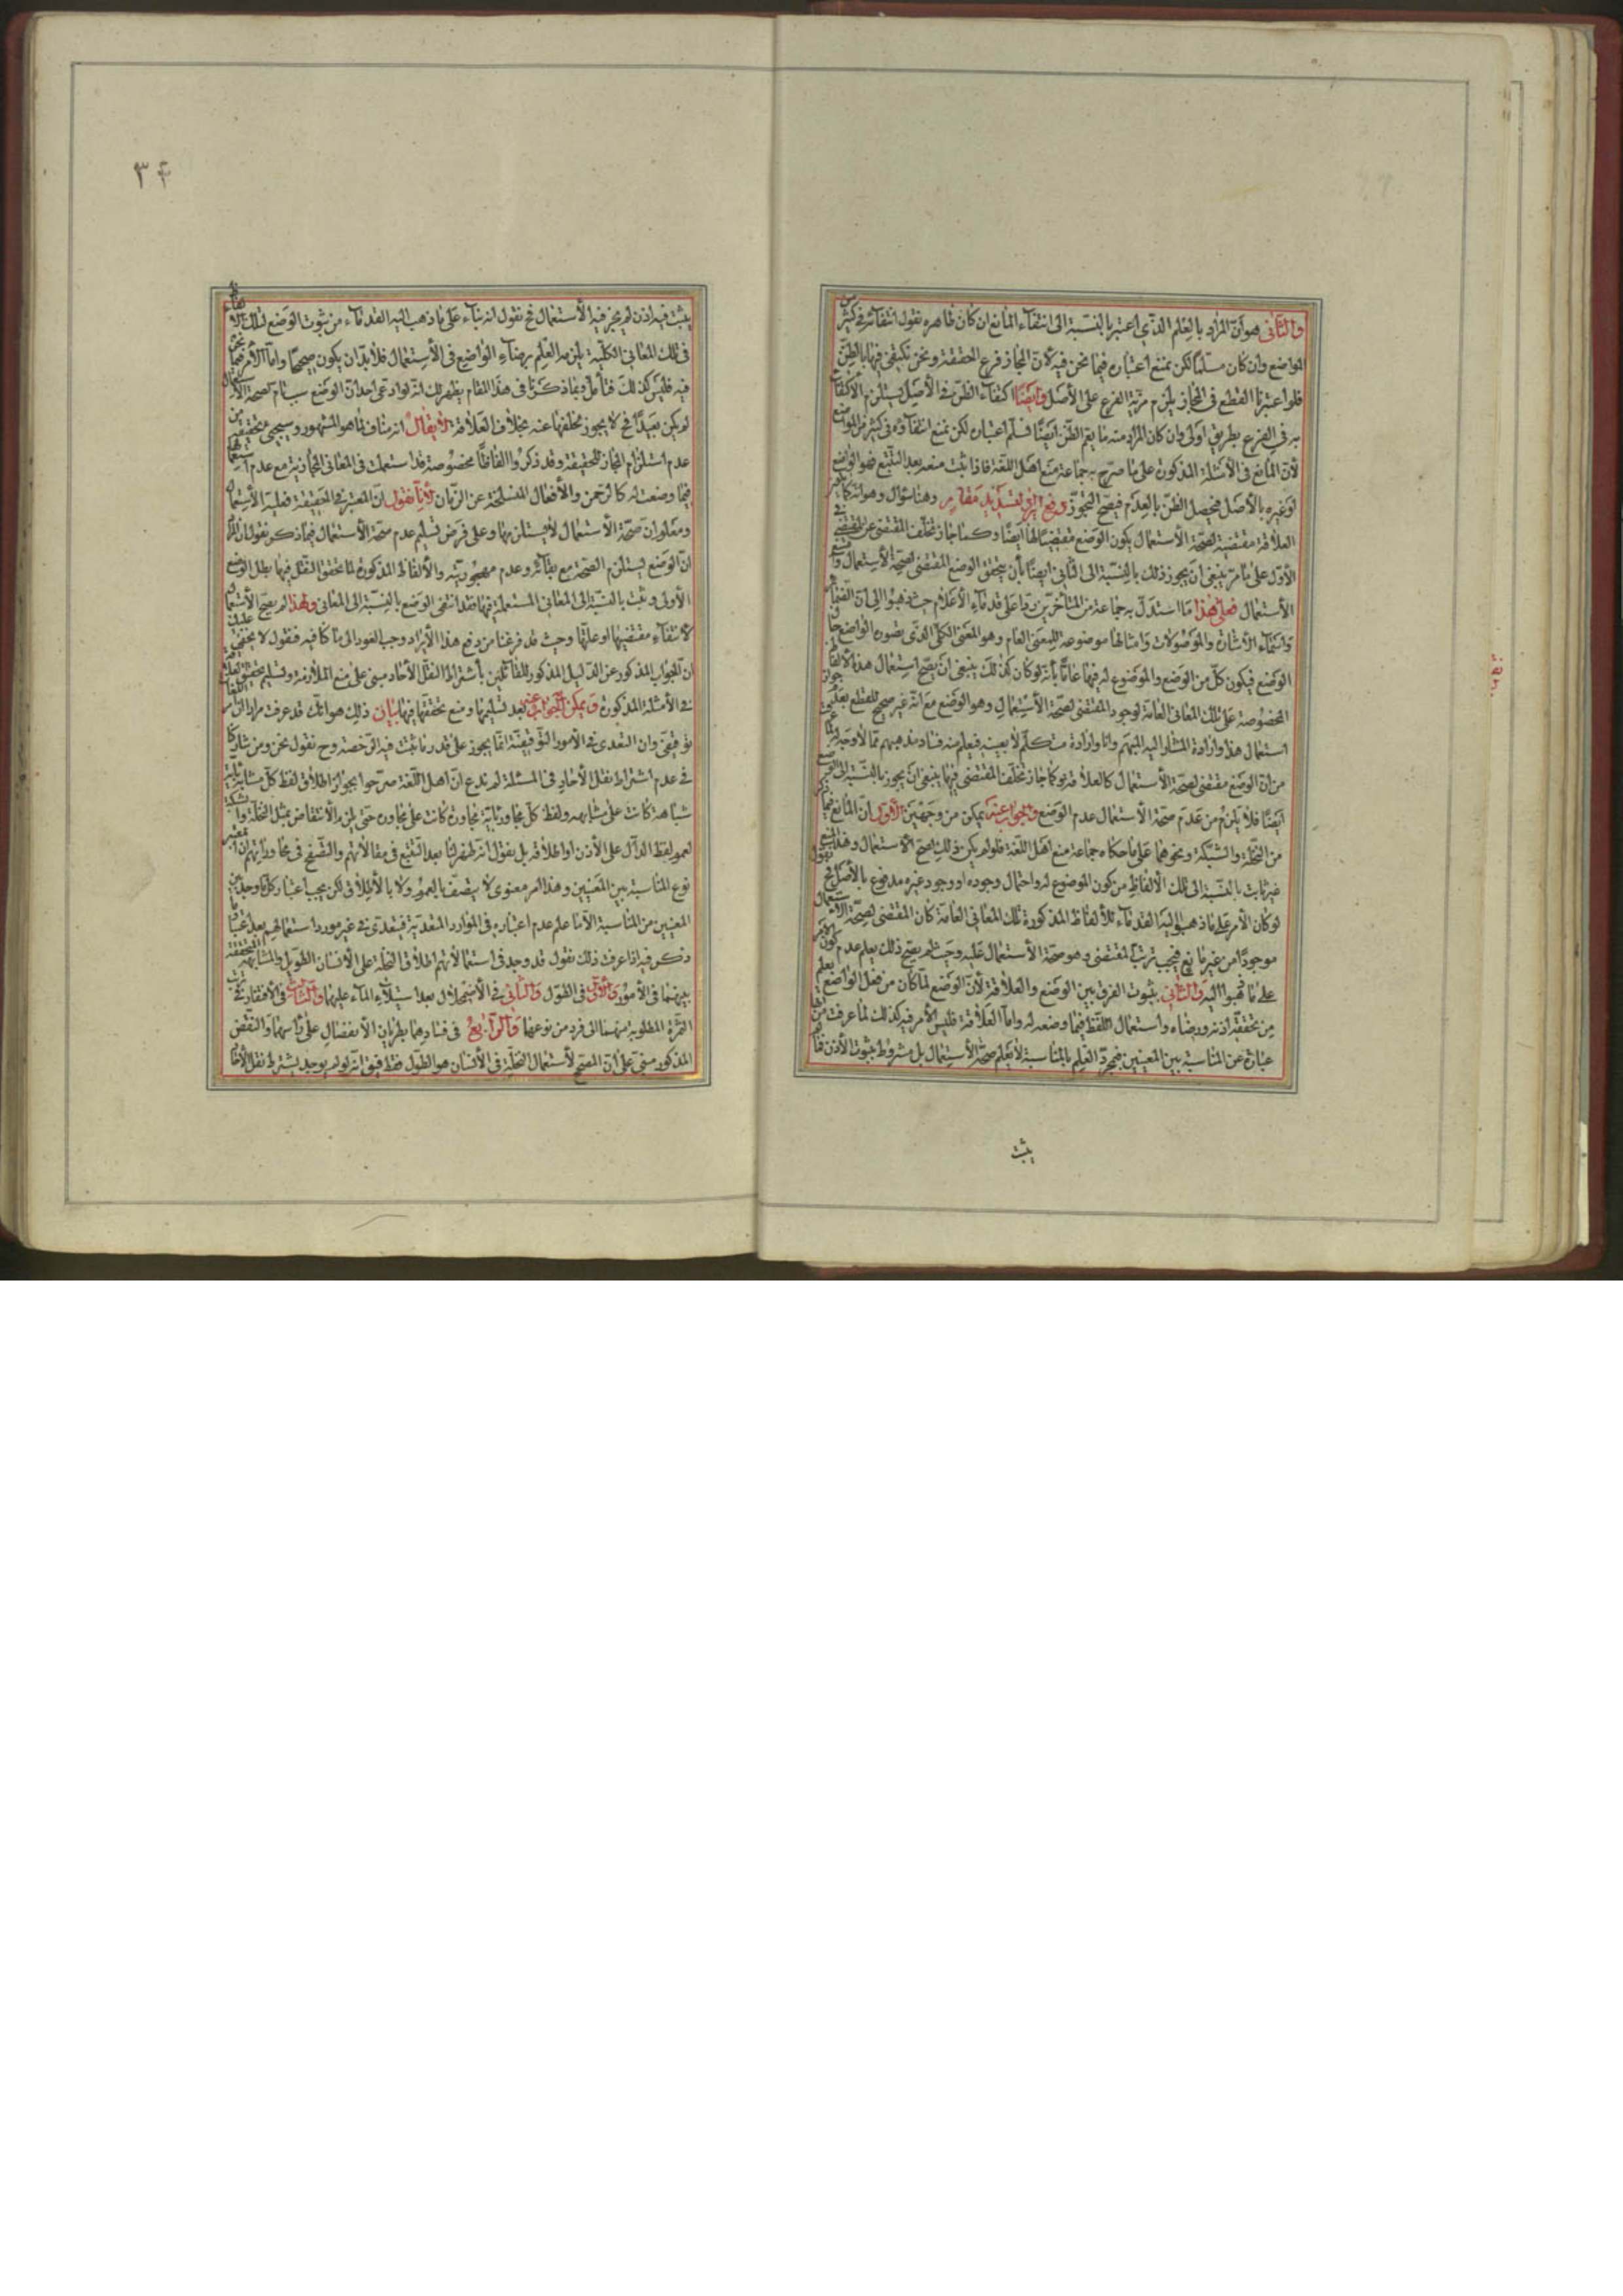 والثاني هو ان المراد بالعلم الذي اعتبر بالنسبة الى انتفاء المانع ان كان ظاهره نقول انتفائه في كثير من
المواضع وان كان مسلما لكن نمنع اعتباره فيما نحن فيه لان المجاز فرع الحقيقة ونحن نكتفي فيها بالظن
فلو اعتبرنا القطع في المجاز يلزم مزية الفرع على الأصل وايضا اكتفاء الظن في الأصل يستلزم الاكتفاء
به في الفرع بطريق اولى وان كان المراد منه ما يعم الظن ايضا فسلم اعتباره لكن نمنع انتفاؤه في كثير من المواضع
لأن المانع في الأمثلة المذكورة على ما صرح به جماعة منع اهل اللغة فاذا ثبت منعه بعد التتبع فهو الواقع
لو غيره بالأصل فيحصل الظن بالعدم فيصح التجوز وهنا سؤال وهو انه كما ان
العلاقة مقتضية لصحة الاستعمال يكون الوضع مقتضيا لها ايضا وكما جاز تخلف المقتضى عن المقتضي في
الأول على ما مر ينبغي ان يجوز ذلك بالنسبة الى الثاني ايضا بأن يتحقق الوضع المقتضي لصحة الاستعمال
الأستعمال فعلى هذا ما استدل به جماعة من المتأخرين ردا على قدماء الأعلام حيث ذهبوا الى ان الضمائر
واسماء الاشارة والموصولات وامثالها موضوعة للمعنى العام وهو المعنى الكلي الذي تصوره الواضع حال
الوضع فيكون كل من الوضع والموضوع له فيها عاما بأنه لو كان كذلك ينبغي ان يصح استعمال هذه الالفاظ
المخصوصة على تلك المعاني العامة لوجود المقتضي لصحة الأستعمال وهو الوضع مع انه غير صحيح للقطع بعدم جواز
استعمال هذا وارادة المشار اليه المبهم وانا وارادة متكلم لا بعينه فيعلم منه فساد مذهبهم مما لا وجه له
من ان الوضع مقتضي لصحة الأستعمال كالعلاقة فكما جاز تخلف المقتضى فيها ينبغي ان يجوز بالنسبة الى الوضع
ايضا فلا يلزم من عدم صحة الأستعمال عدم الوضع والجواب عنه يمكن من وجهين الاول ان المانع فيما ذكر
من النخلة والشبكة ونحوهما على ما حكاه جماعة منع اهل اللغة فلو لم يكن ذلك لصح الاستعمال وهذا المنع
غير ثابت بالنسبة الى تلك الألفاظ من كون الموضوع له واحتمال وجوده او وجود غيره مدفوع بالأصل فح نقول
لو كان الأمر على ما ذهب اليه القدماء تلك الفاظ المذكورة تلك المعاني العامة كان المقتضي لصحة الأستعمال
موجودا من غير مانع فيجب ترتب المقتضى وهو صحة الأستعمال عليه وحيث لم يصح ذلك يعلم عدم كون الأمر
على ما ذهبوا اليه والثاني بثبوت الفرق بين الوضع والعلاقة لأن الوضع لما كان من فعل الواضع يعلم
من تحققه اذنه ورضاه واستعمال اللفظ فيما وضعه له واما العلاقة فليس الأمر فيه كذلك لما عرفت من انها
عبارة عن المناسبة بين المعنيين فبمجرد العلم بالمناسبة لا يعلم صحة الأستعمال بل مشروط بثبوت الأذن فما لم
يثبت
٣٤
يثبت فيه اذن لم يجز فيه الأستعمال فح نقول انه بناء على ما ذهب اليه القدماء من ثبوت الوضع لتلك الالفاظ
في تلك المعاني الكلية يلزمه العلم برضاء الواضع في الأستعمال فلا بد ان يكون صحيحا واما الأمر فيما نحن
فيه فليس كذلك فتأمل وبما ذكرنا في هذا المقام يظهر لك انه لو ادعى احد ان الوضع سبب تام لصحة الأستعمال
لم يكن بعيدا فح لا يجوز تخلفها عنه بخلاف العلاقة لا يقال انه مناف لما هو المشهور وسيجيئ تحقيقه من
عدم استلزام المجاز للحقيقة وقد ذكروا الفاظا مخصوصة قد استعملت في المعاني المجازية مع عدم استعمالها
فيما وضعت له كالرحمن والأفعال المنسلخة عن الزمان لأنا نقول ان المعتبر في الحقيقة فعلية الأستعمال
ومعلوم ان صحة الأستعمال لا يستلزمها وعلى فرض تسليم عدم صحة الأستعمال فيما ذكر نقول المراد
ان الوضع يستلزم الصحة مع بقائه وعدم مهجوريته والألفاظ المذكورة لما تحقق النقل فيها بطل الوضع
الأولى وثبت بالنسبة الى المعاني المستعملة فيها فقد انتفى الوضع بالنسبة الى المعاني ولهذا لم يصح الأستعمال
لأنتفاء مقتضيها او علتها وحيث قد فرغنا من دفع هذا الأيراد وجب العود الى ما كنا فيه فنقول لا يخفى عليك
ان الجواب المذكور عن الدليل المذكور للقائلين بأشتراط النقل الأحاد مبني على منع الملازمة وتسليم تحقق العلاقة
في الأمثلة المذكورة ويمكن الجواب عنه بعد تسليمها ومنع تحققها فيها بيان ذلك هو انك قد عرفت مرارا ان
توقيفي وان التعدي في الأمور التوقيفية انما يجوز على قدر ما ثبت فيه الرخصة وح نقول نحن ومن شاركنا
في عدم اشتراط نقل الأحاد في المسئلة لم ندع ان اهل اللغة صرحوا بجواز اطلاق لفظ كل مشابه بأية
شباهة كانت على مشابهه ولفظ كل مجاور بأية مجاورة كانت على مجاوره حتى يلزم الأنتقاض بمثل النخلة والشبكة
لعموم لفظ الدال على الأذن او اطلاقه بل نقول انه ظهر لنا بعد التتبع في مقالاتهم والتصفح في محاوراتهم ان المعتبر
نوع المناسبة بين المعنيين وهذا امر معنوي لا يتصف بالعموم ولا بالأطلاق لكن يجب اعتبار كل ما وجد بين
المعنيين من المناسبة الا ما علم عدم اعتباره في الموارد المتعدية فيتعدى في غير مورد استعمالهم بعد اعتبار ما
ذكر فيه اذا عرفت ذلك نقول قد وجد في استعمالاتهم اطلاق النخلة على الأنسان الطويل والمشابهة المتحققة
بينهما في الأمور الأول في الطول والثاني في الأضمحلال بعد استيلاء الماء عليهما والثالث في الأفتقار في ترتب
الثمرة المطلوبة منهما الى فرد من نوعهما والرابع في فسادهما بطريان الأنفصال على رأسهما والنقض
المذكور مبني على ان المصحح لأستعمال النخلة في الأنسان هو الطول فقط فيق انه لو لم يوجد يشترط نقل الأحاد